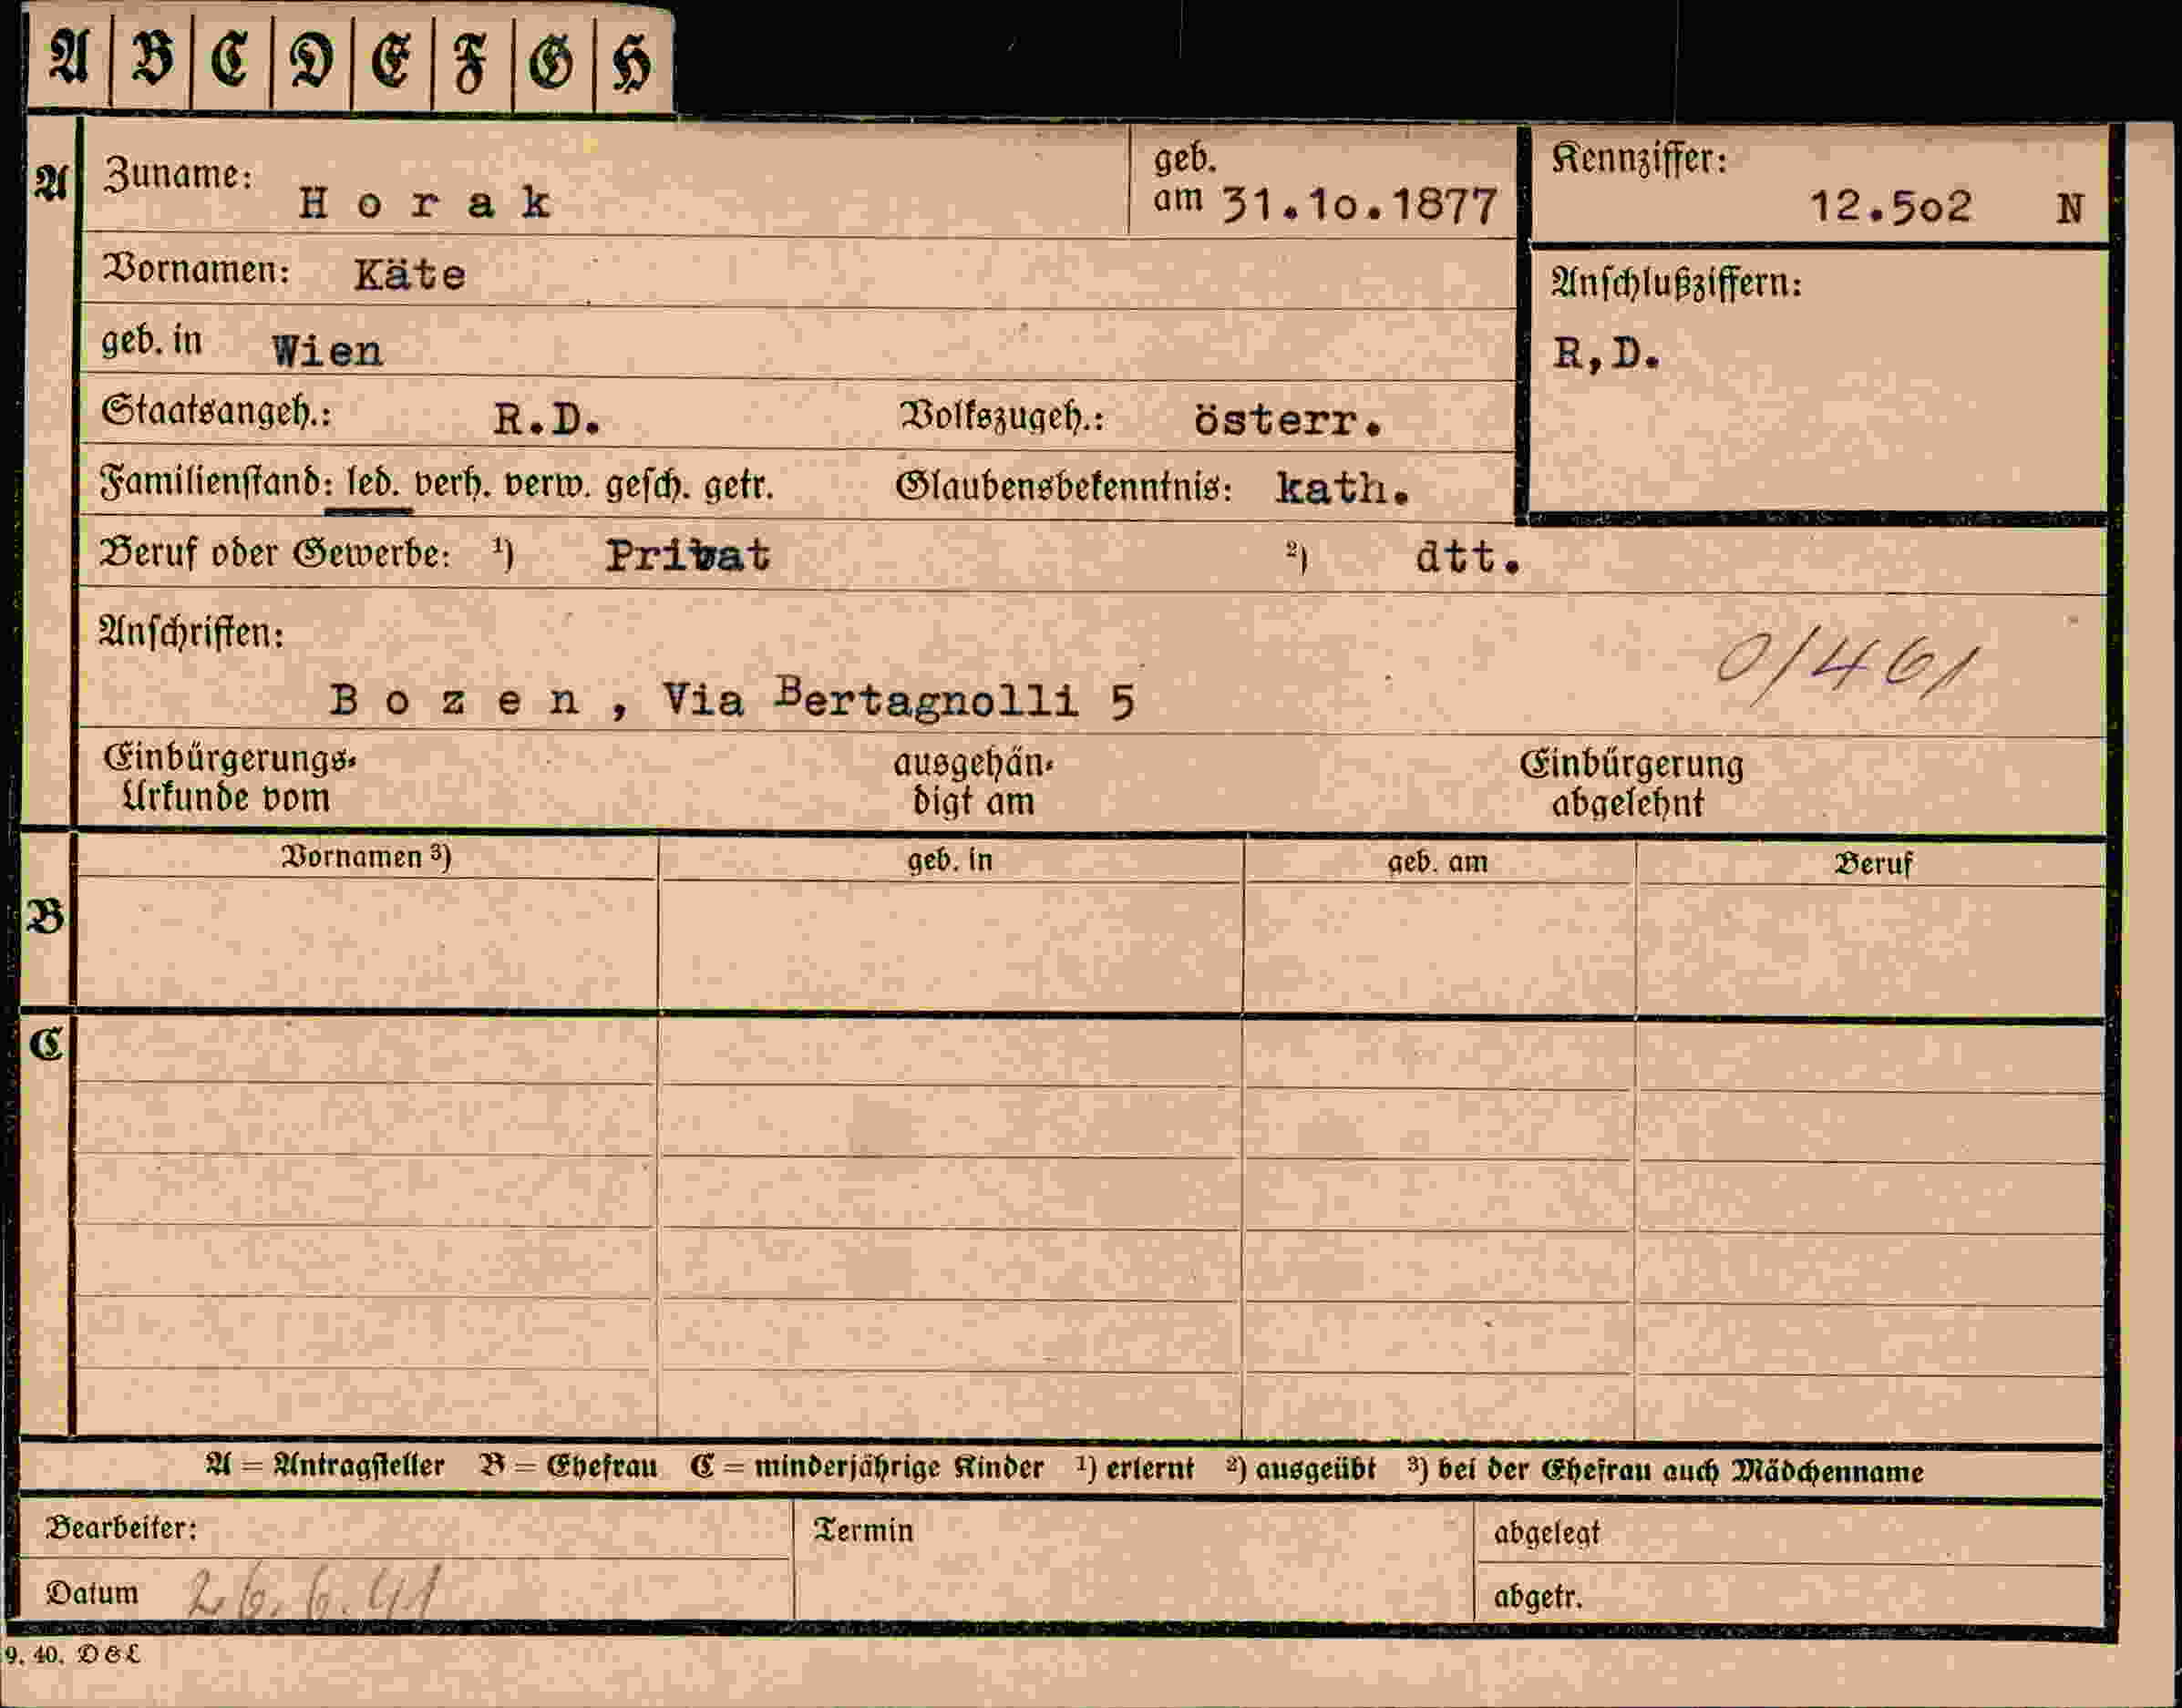 A B C D E F G H
A Zuname: Horak geb. am 31.1o.1877 Kennziffer: 12.5o2 N
Vornamen: Käte Anschlußziffern:
geb. in Wien R,D.
Staatsangeh.: R.D. Volkszugeh.: österr.
Familienstand: led. verh. verw. gesch. getr. Glaubensbekenntnis: kath.
Beruf oder Gewerbe: ¹) Privat ²) dtt.
Anschriften: 0/461
Bozen, Via Bertagnolli 5
Einbürgerungs- ausgehän- Einbürgerung
Urkunde vom digt am abgelehnt
Vornamen ³) geb. in geb. am Beruf
B
C
A = Antragsteller B = Ehefrau C = minderjährige Kinder ¹) erlernt ²) ausgeübt ³) bei der Ehefrau auch Mädchenname
Bearbeiter: Termin abgelegt
Datum 26.6.41 abgetr.
9. 40. D&L